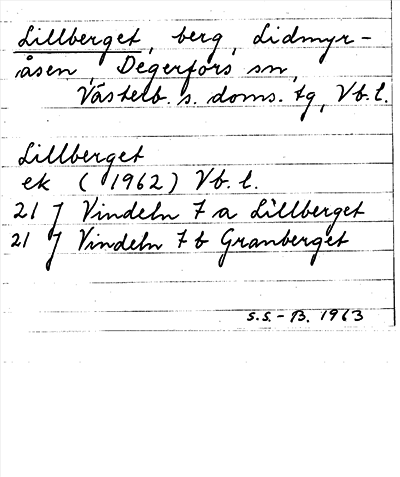 Lillberget, berg, Lidmyr-
åsen, Degerfors sn,
Västerb. s. doms. tg, Vb. l.
Lillberget
ek (1962) Vb. l.
21 J Vindeln 7 a Lillberget
21 J Vindeln 7 b Granberget
S.S. - B. 1963